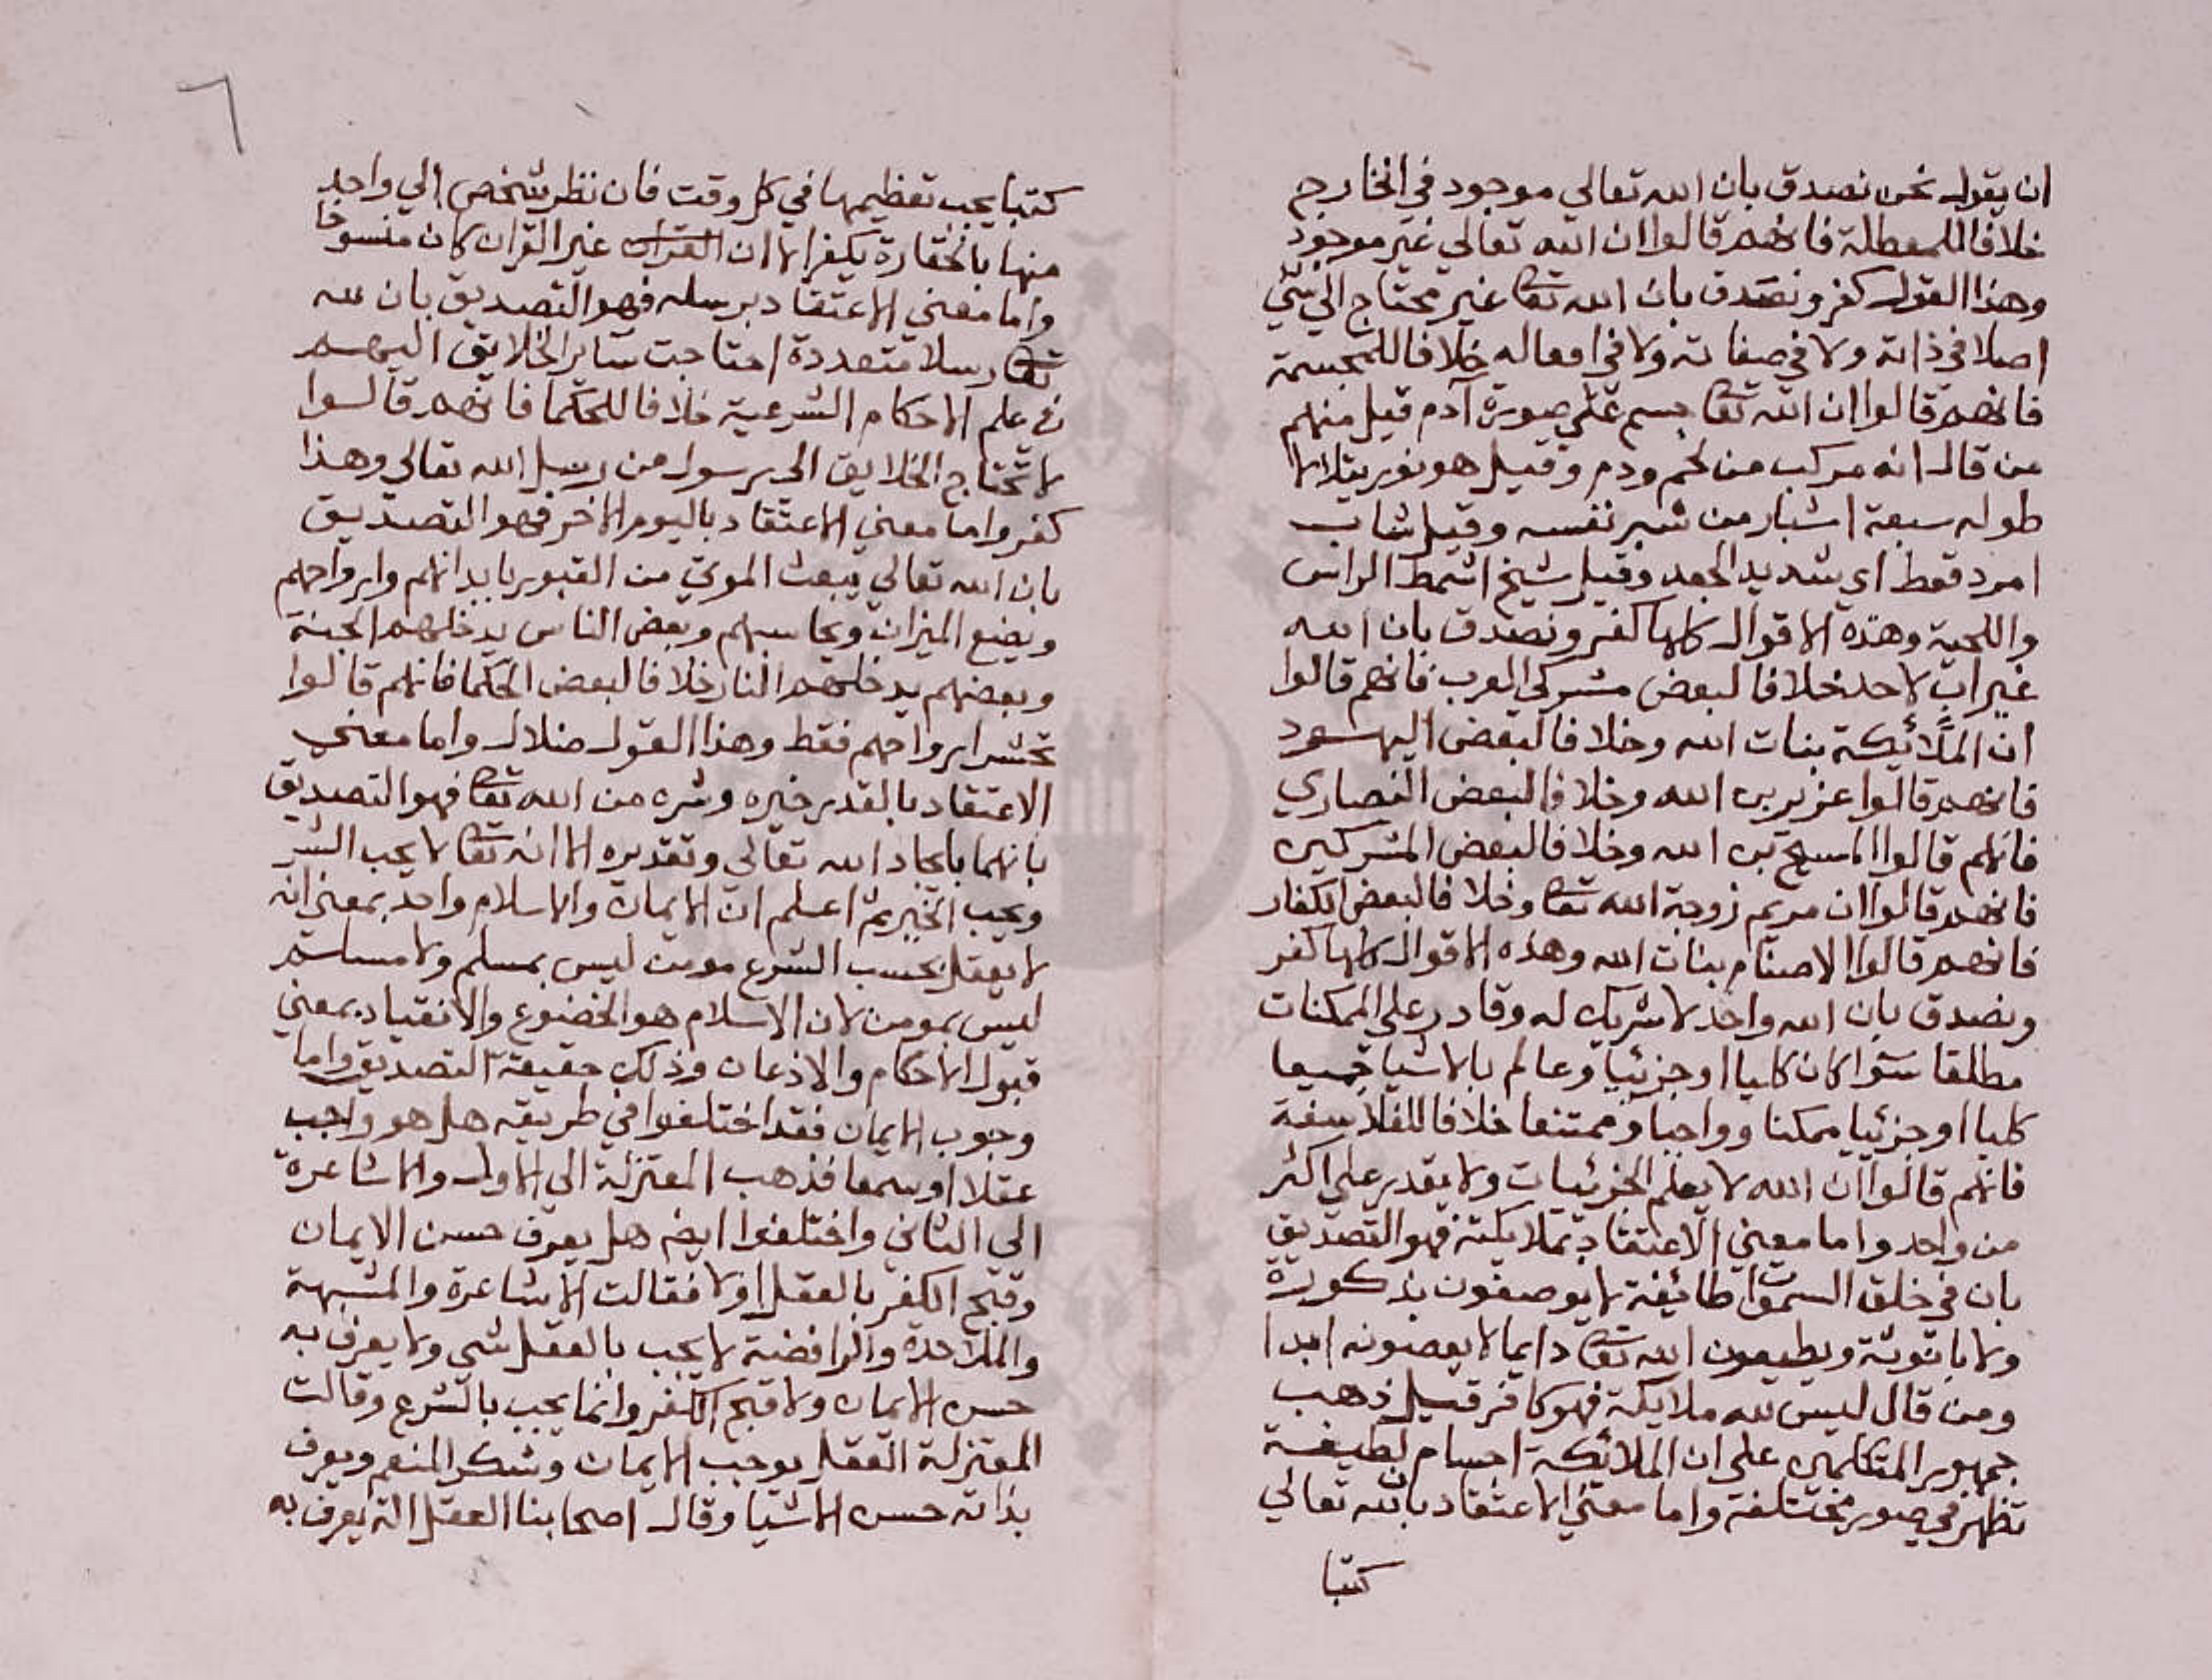 ان يقول نحن نصدق بان الله تعالي موجود في الخارج
خلافا للمعطلة فانهم قالوا ان الله تعالي غير موجود
وهذا القول كفر ونصدق بان الله تعا غير محتاج الي شي
اصلا في ذاته ولا في صفاته ولا في افعاله خلافا للمجسمة
فانهم قالوا ان الله تعا جسم علي صورة آدم قيل منهم
من قال انه مركب من لحم ودم وقيل هو نور يتلالا
طوله سبعة اشبار من شبر نفسه وقيل شاب
امرد قطط اي شديد الجعد وقيل شيخ اشمط الراس
واللحية وهذه الاقوال كلها كفر ونصدق بان الله
غير اب لاحد خلافا لبعض مشركي العرب فانهم قالوا
ان الملائكة بنات الله وخلافا لبعض اليهود
فانهم قالوا عزير بن الله وخلافا لبعض النصاري
فانهم قالوا المسيح بن الله وخلافا لبعض المشركين
فانهم قالوا ان مريم زوجة الله تعا وخلافا لبعض الكفار
فانهم قالوا الاصنام بنات الله وهذه الاقوال كلها كفر
ونصدق بان الله واحد لا شريك له وقادر علي الممكنات
مطلقا سوا كان كليا او جزئيا وعالم بالاشيا جميعا
كليا او جزئيا ممكنا وواجبا وممتنعا خلافا للفلاسفة
فانهم قالوا ان الله لا يعلم الجزئيات ولا يقدر علي اكثر
من واحد واما معني الاعتقاد بملايكته فهو التصديق
بان في خلق السموات طائفة لا يوصفون بذكورة
ولا بانوثة ويطيعون الله تعا دايما لا يعصونه ابدا
ومن قال ليس لله ملايكة فهو كافر قيل ذهب
جمهور المتكلمين علي ان الملائكة اجسام لطيفة
تظهر في صور مختلفة واما معني الاعتقاد بان لله تعالي
كتبا
٦
كتبا يجب تعظيمها في كل وقت فان نظر شخص الي واحد
منها بالحقارة يكفر الا ان القران غير القران كان منسوخا
واما معني الاعتقاد برسله فهو التصديق بان لله
تعا رسلا متعددة احتاجت ساير الخلايق اليهم
في علم الاحكام الشرعية خلافا للحكما فانهم قالوا
لا تحتاج الخلايق الي رسول من رسل الله تعالي وهذا
كفر واما معني الاعتقاد باليوم الاخر فهو التصديق
بان الله تعالي يبعث الموتي من القبور بابدانهم وارواحهم
ويضع الميزان ويحاسبهم وبعض الناس يدخلهم الجنة
وبعضهم يدخلهم النار خلافا لبعض الحكما فانهم قالوا
تحشر ارواحهم فقط وهذا القول ضلال واما معني
الاعتقاد بالقدر خيره وشره من الله تعا فهو التصديق
بانهما بايجاد الله تعالي وتقديره الا انه تعا لا يحب الشر
ويحب الخير ثم اعلم ان الايمان والاسلام واحد بمعني انه
لا يعقل بحسب الشرع مومن ليس بمسلم ولا مسلم
ليس بمومن لان الاسلام هو الخضوع والانقياد بمعني
قبول الاحكام والاذعان وذلك حقيقة التصديق واما
وجوب الايمان فقد اختلفوا في طريقه هل هو واجب
عقلا او سمعا فذهب المعتزلة الي الاول والاشاعرة
الي الثاني واختلفوا ايض هل يعرف حسن الايمان
وقبح الكفر بالعقل او لا فقالت الاشاعرة والمشبهة
والملاحدة والرافضة لا يجب بالعقل شي ولا يعرف به
حسن الايمان ولا قبح الكفر وانما يجب بالشرع وقالت
المعتزلة العقل يوجب الايمان وشكر المنعم ويعرف
بذاته حسن الاشيا وقال اصحابنا العقل الة يعرف به